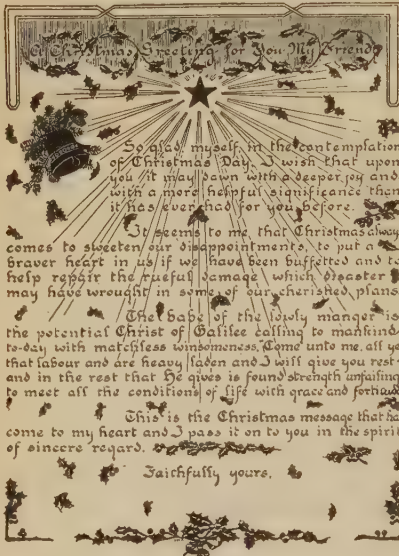 A Christmas Greeting for You My Friend
So glad, myself, in the contemplation
of Christmas Day, I wish that upon
you it may dawn with a deeper joy and
with a more helpful significance than
it has ever had for you before.
It seems to me, that Christmas alway
comes to sweeten our disappointments, to put a
braver heart in us if we have been buffetted and to
help repair the rueful damage which disaster
may have wrought in some of our cherished plans.
The babe of the lowly manger is
the potential Christ of Galilee calling to mankind
to-day with matchless winsomeness, "Come unto me, all ye
that labour and are heavy laden and I will give you rest"
and in the rest that He gives is found strength unfailing
to meet all the conditions of life with grace and fortitude
This is the Christmas message that ha
come to my heart and I pass it on to you in the spirit
of sincere regard.
Faithfully yours,